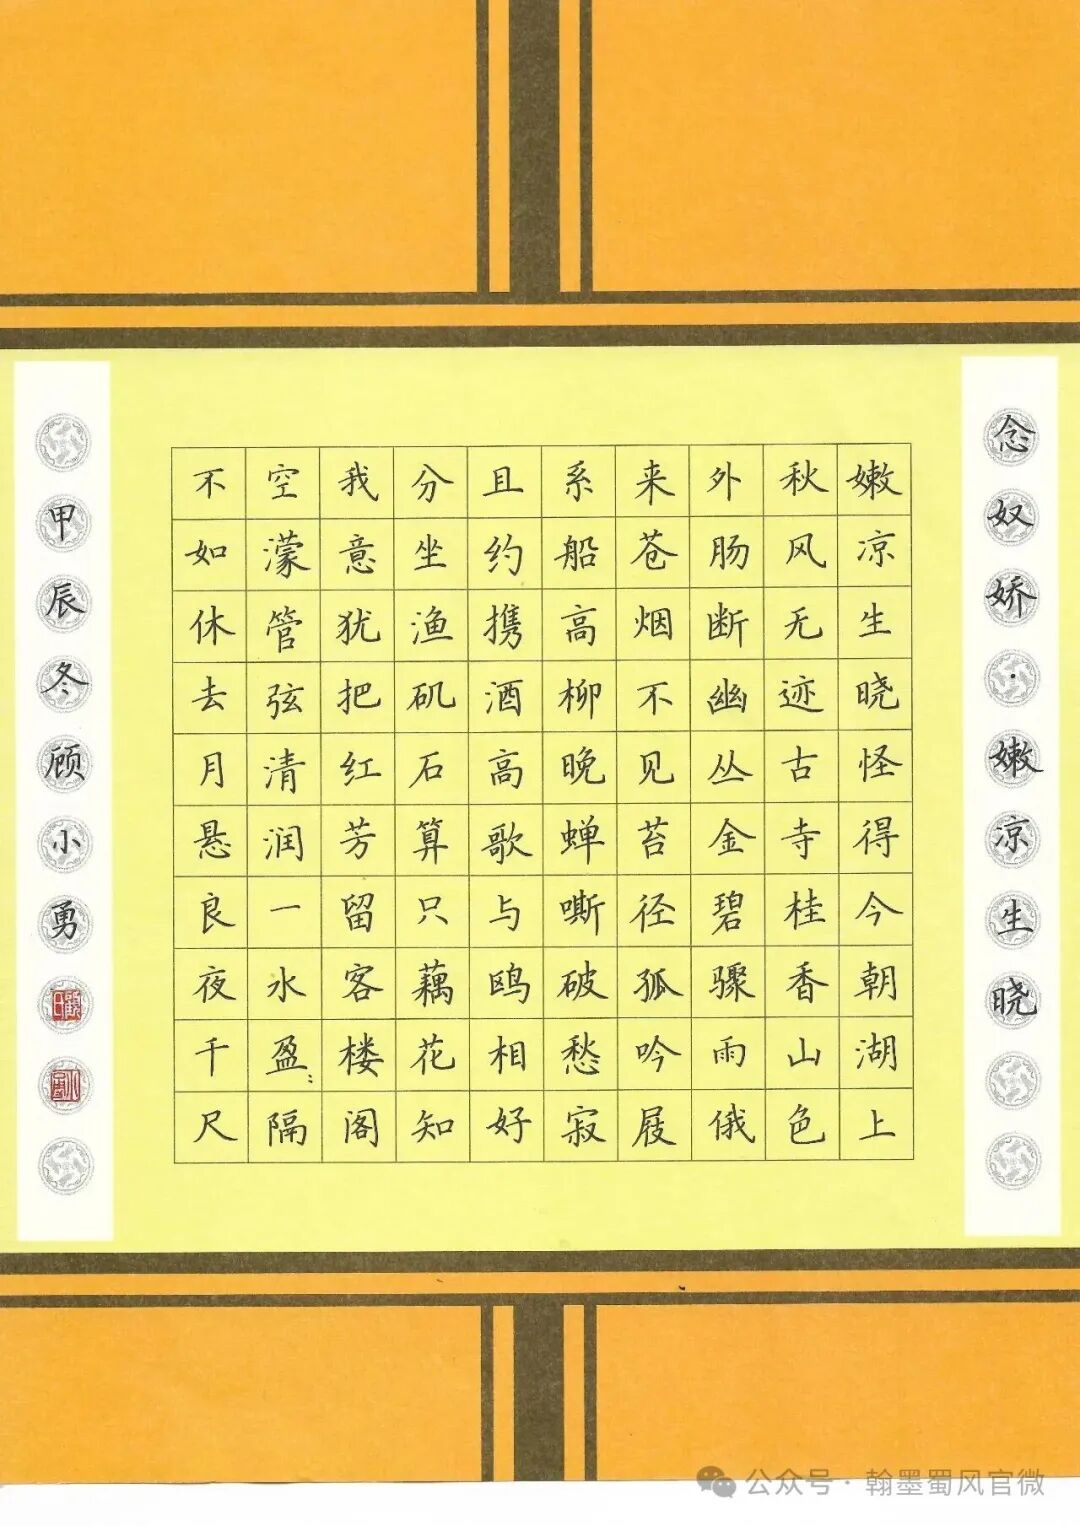 念奴娇·嫩凉生晓
嫩凉生晓怪得今朝湖上
秋风无迹古寺桂香山色
外肠断幽丛金碧骤雨俄
来苍烟不见苔径孤吟屐
系船高柳晚蝉嘶破愁寂
且约携酒高歌与鸥相好
分坐渔矶石算只藕花知
我意犹把红芳留客楼阁
空濛管弦清润一水盈盈隔
不如休去月悬良夜千尺
甲辰冬顾小勇
公众号·翰墨蜀风官微